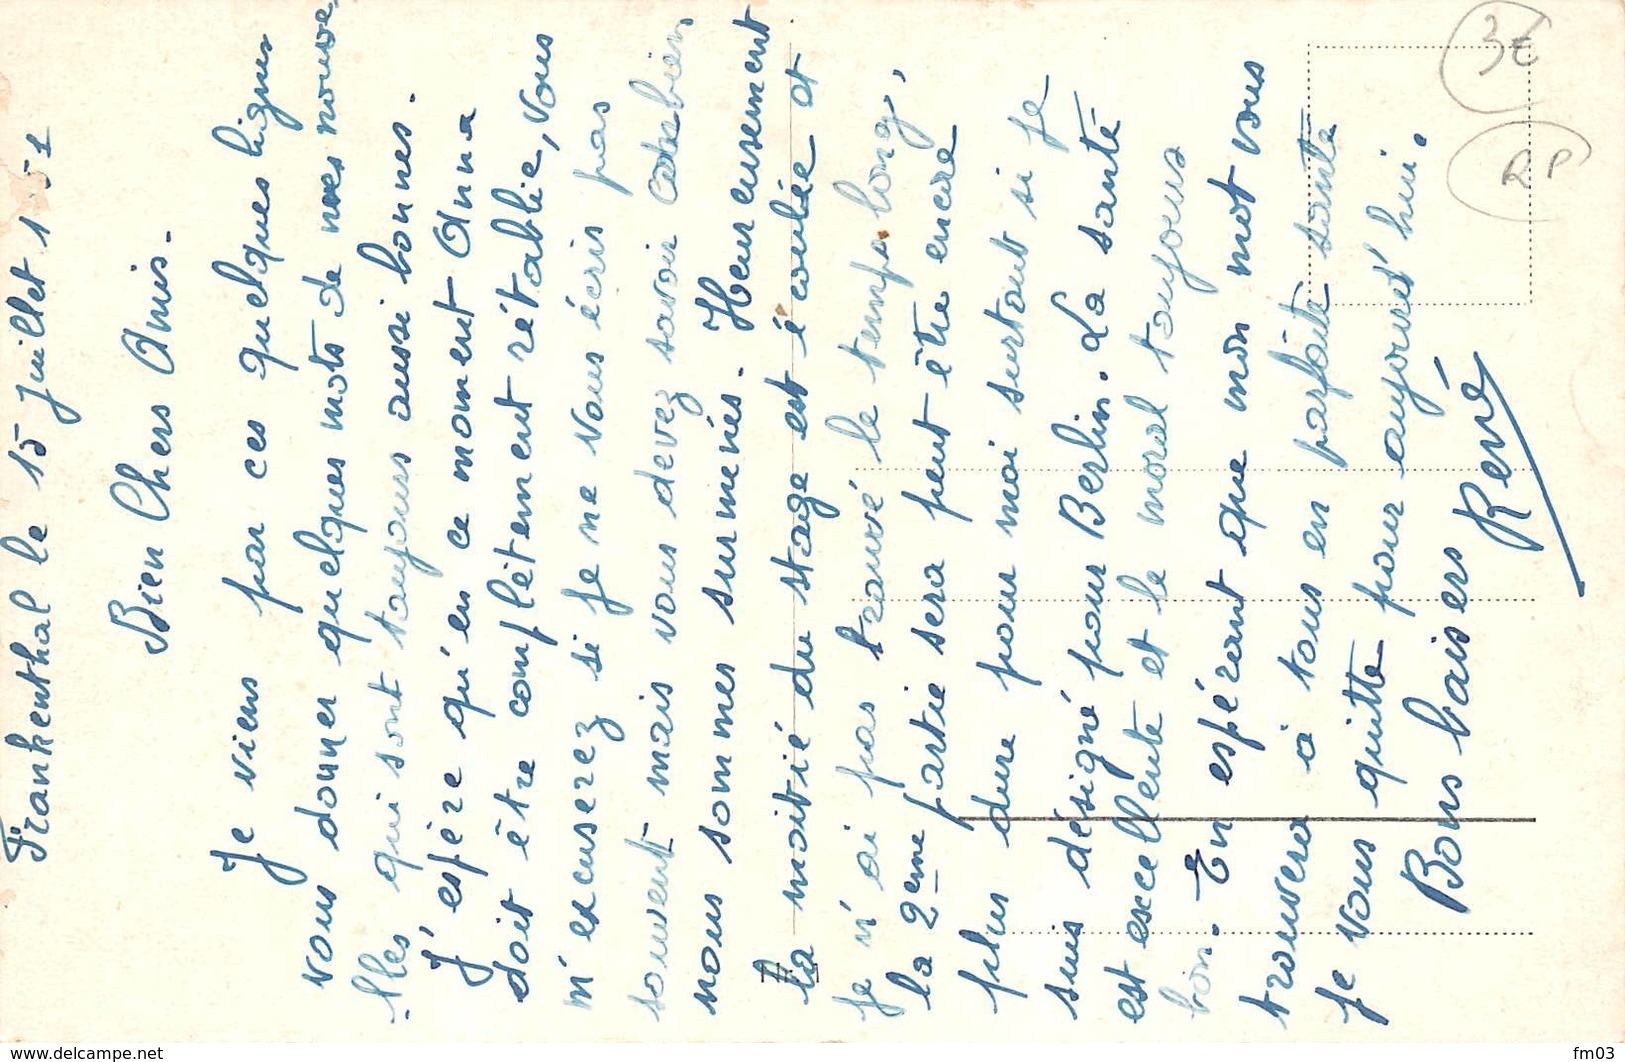 Frankenthal le 15 juillet 1951
Bien Chers Amis.
Je viens par ces quelques lignes
vous donner quelques mots de mes nouve
-lles qui sont toujours aussi bonnes.
J'espère qu'en ce moment Anna
doit être complètement rétablie, vous
m'excuserez si je ne vous écris pas
souvent mais vous devez savoir combien
nous sommes surmenés. Heureusement
la moitié du stage est écoulée et
je n'ai pas trouvé le temps long,
la 2eme partie sera peut être encore
plus dure pour moi surtout si je
suis désigné pour Berlin. La santé
est excellente et le moral toujours
bon. En espérant que mon mot vous
trouvera à tous en parfaite santé
je vous quitte pour aujourd'hui.
Bons baisers
René
3€
RP
www.delcampe.net
fm03